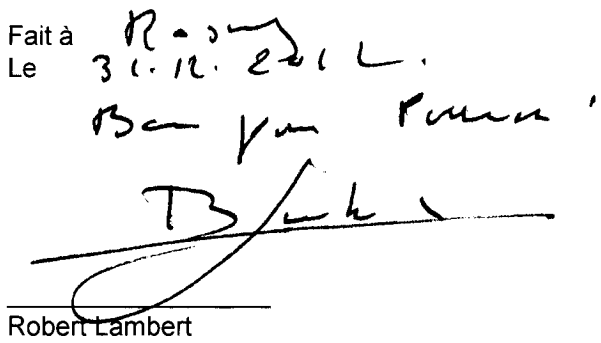 Fait à
Le 31.12.2012.
Bon pour Pouvoir
Robert Lambert